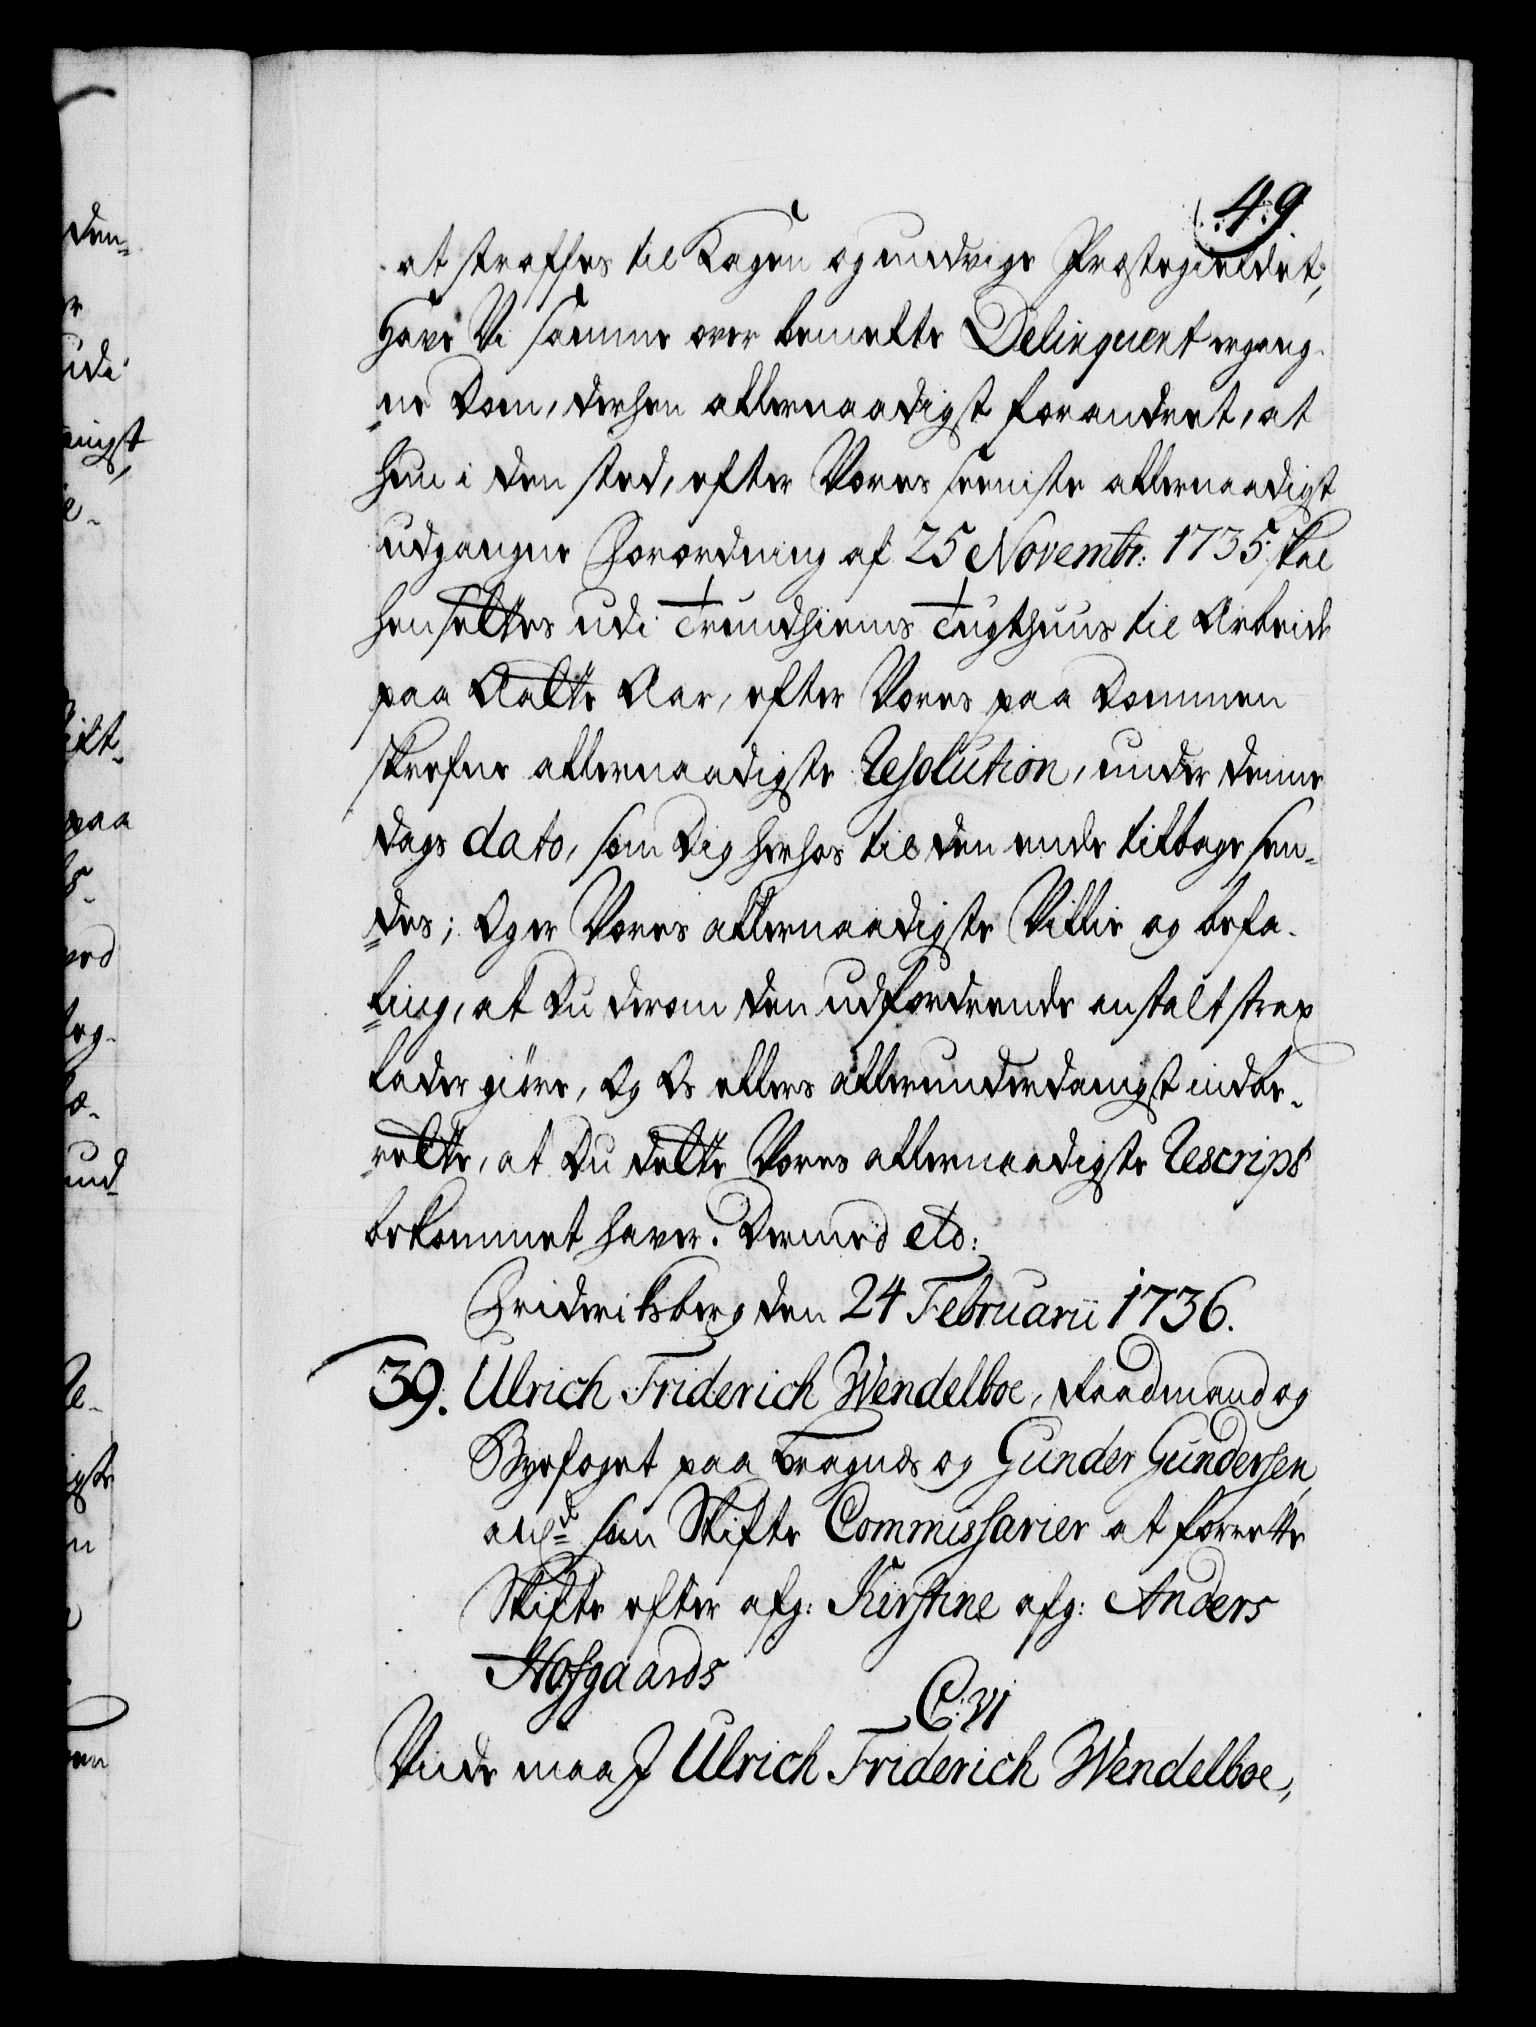 49
at straffes til Kagen og undvige Præstegieldet;
Have Vi samme over bemelte Delinquent ergang-
ne Dom, derhen allernaadigst forandret, at
hun i den sted, efter Vores seeniste allernaadigst
udgangne Forordning af 25 Novembr: 1735. skal
hensettes udi Trundhiems Tugthuus til Arbeide
paa Aatte Aar, efter Vores paa Dommen
skrefne allernaadigste Resolution, under denne
dags dato, som Dig herhos til den ende tilbage sen-
des; Og er Vores allernaadigste Villie og befa-
ling, at Du derom den udfordrende anstalt strax
lader giøre, Og Os ellers allerunderdanigst indbe-
rette, at Du dette Vores allernaadigste Rescript
bekommet haver. Dermed etc:
Frideriksberg den 24 Februarii 1736.
39. Ulrich Friderich Wendelboe, Raadmand og
Byefoget paa Bragnæs og Gunder Gundersen,
som Skifte Commissarier at forrette
Skifte efter afg: Kirstine afg: Anders
Hofgaards
C: VI
Viide maa I Ulrich Friderich Wendelboe,
den-
r
udi
ningst
paa
ved
und-
n